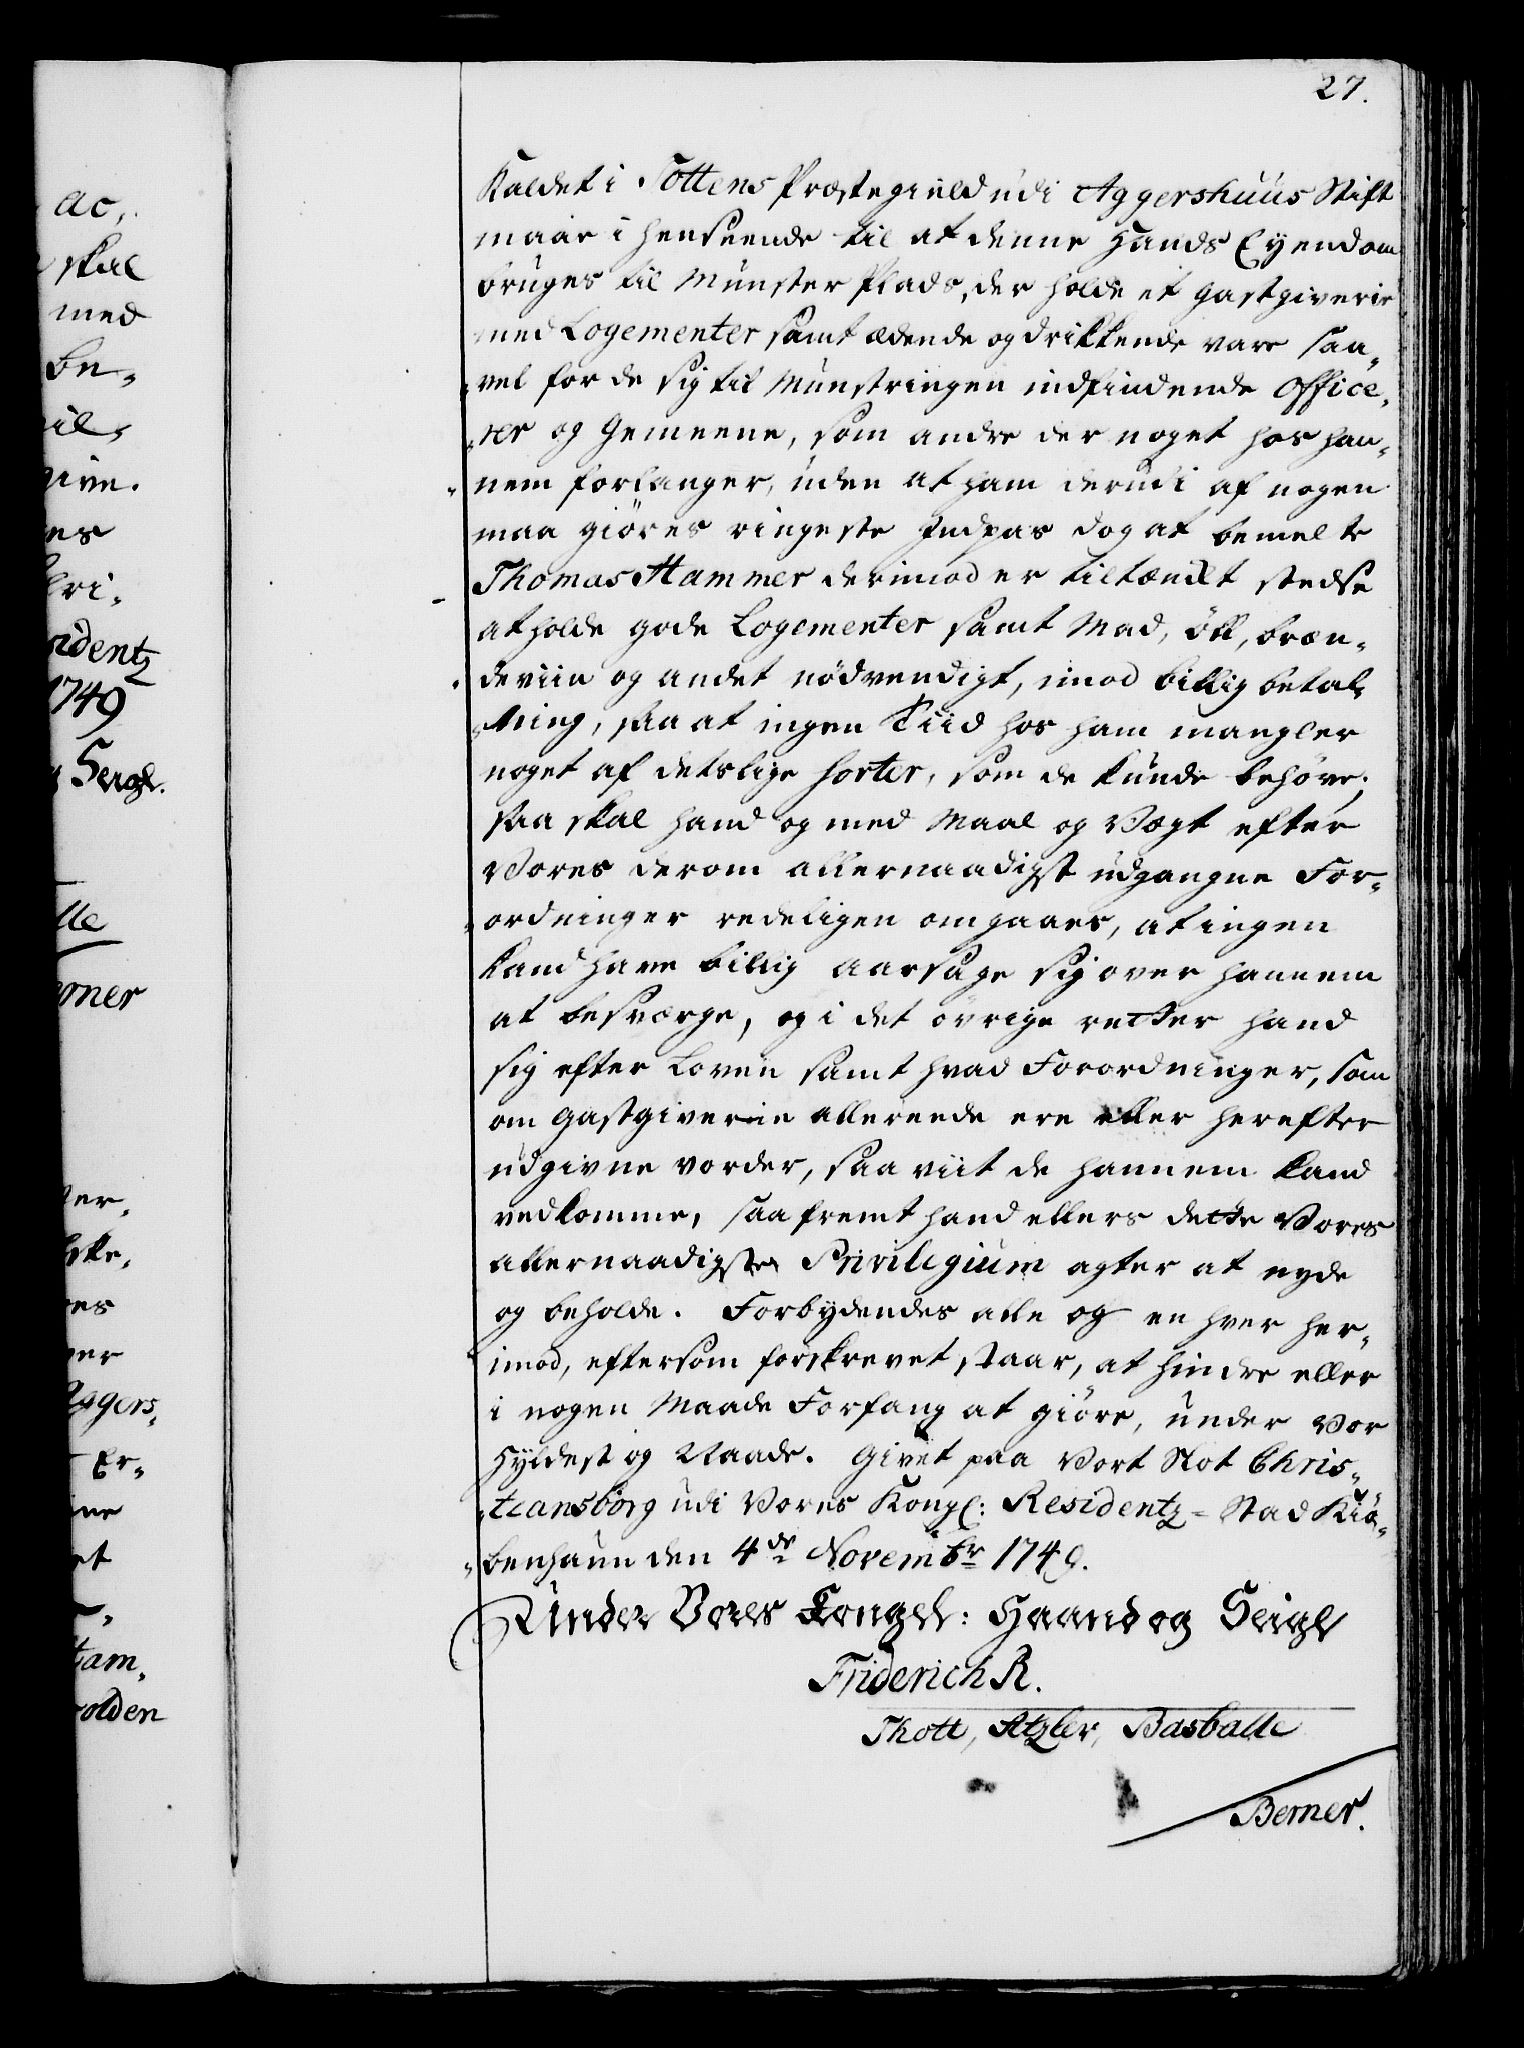 27.
Kaldet i Tottens Præstegield udi Aggershuus Stift
maae i henseende til at denne Hands Eyendom
bruges til Mynster Plads, der holde et Gastgiverie
med Logementer samt ædende og drikkende vare saa„
„vel for de sig til Mynstringen indfindende Office„
„rer og Gemeene, som andre der noget hos han„
„nem forlanger, uden at ham derudi af nogen
maa giöres ringeste Indpas dog at bemelte
Thomas Hammer derimod er tiltænkt stedse
at holde gode Logementer samt Mad, öll, bræn„
„deviin og andet nödvendigt, imod billig betal„
„ning, saa at ingen Tiid hos ham mangler
noget af detslige sorter, som de kunde behöve;
saa skal hand og med Maal og Vægt efter
Vores derom allernaadigst udgangne For„
„ordninger redeligen omgaaes, at ingen
kand have billig aarsage sig over hannem
at besværge, og i det övrige retter hand
sig efter Loven samt hvad Forordninger, som
om Gastgiverie allereede ere eller herefter
udgivne vorder, saa viit de hannem kand
vedkomme, saafremt hand ellers dette Vores
allernaadigste Privilegium agter at nyde
og beholde. Forbydendes alle og en hver her„
„imod, eftersom forskrevet staar, at hindre eller
i nogen Maade Forfang at giöre, under Vor
Hyldest og Naade. Givet paa Vort Slot Chris„
„tiansborg udi Vores Kongl: Residentz-Stad Kiö„
„benhaun den 4de Novembr 1749.
Under Vores Kongel: Haand og Seigl
Friderich R.
Thott, Atzler, Basballe
Berner.
ac,
skal
med
be„
give.
identz
1749
Seigl.
Aggers„
ham„